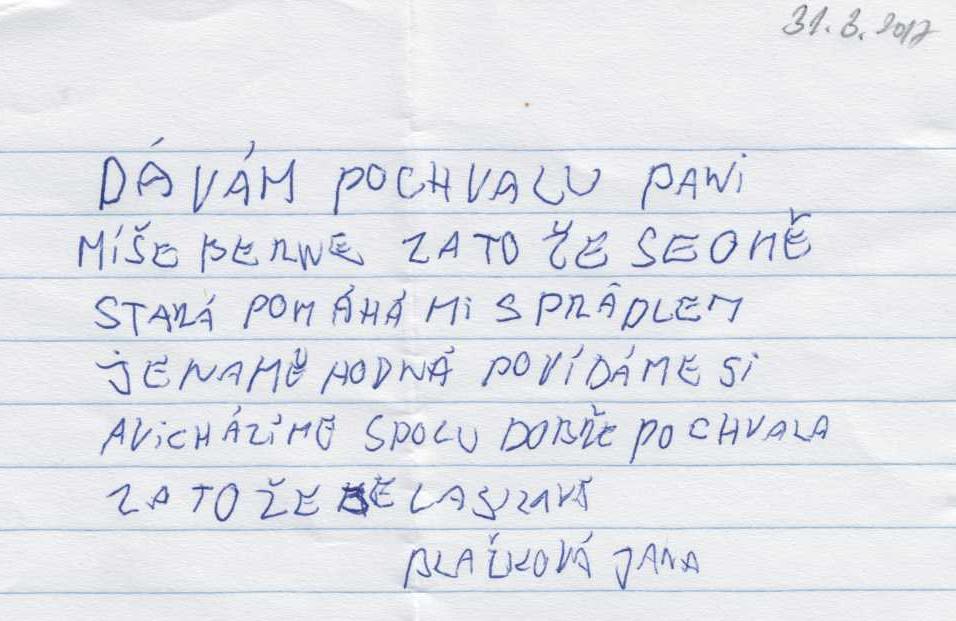 31.3.2017
DÁVÁM POCHVALU PANI
MÍŠE BERNE ZA TO ŽE SEOMĚ
STARÁ POMÁHÁ MI S PRÂDLEM
JE NAMĚ HODNÁ POVÍDÁME SI
AVICHÁZÍME SPOLU DOBŘE POCHVALA
ZA TO ŽE
BLAŽKOVÁ JANA